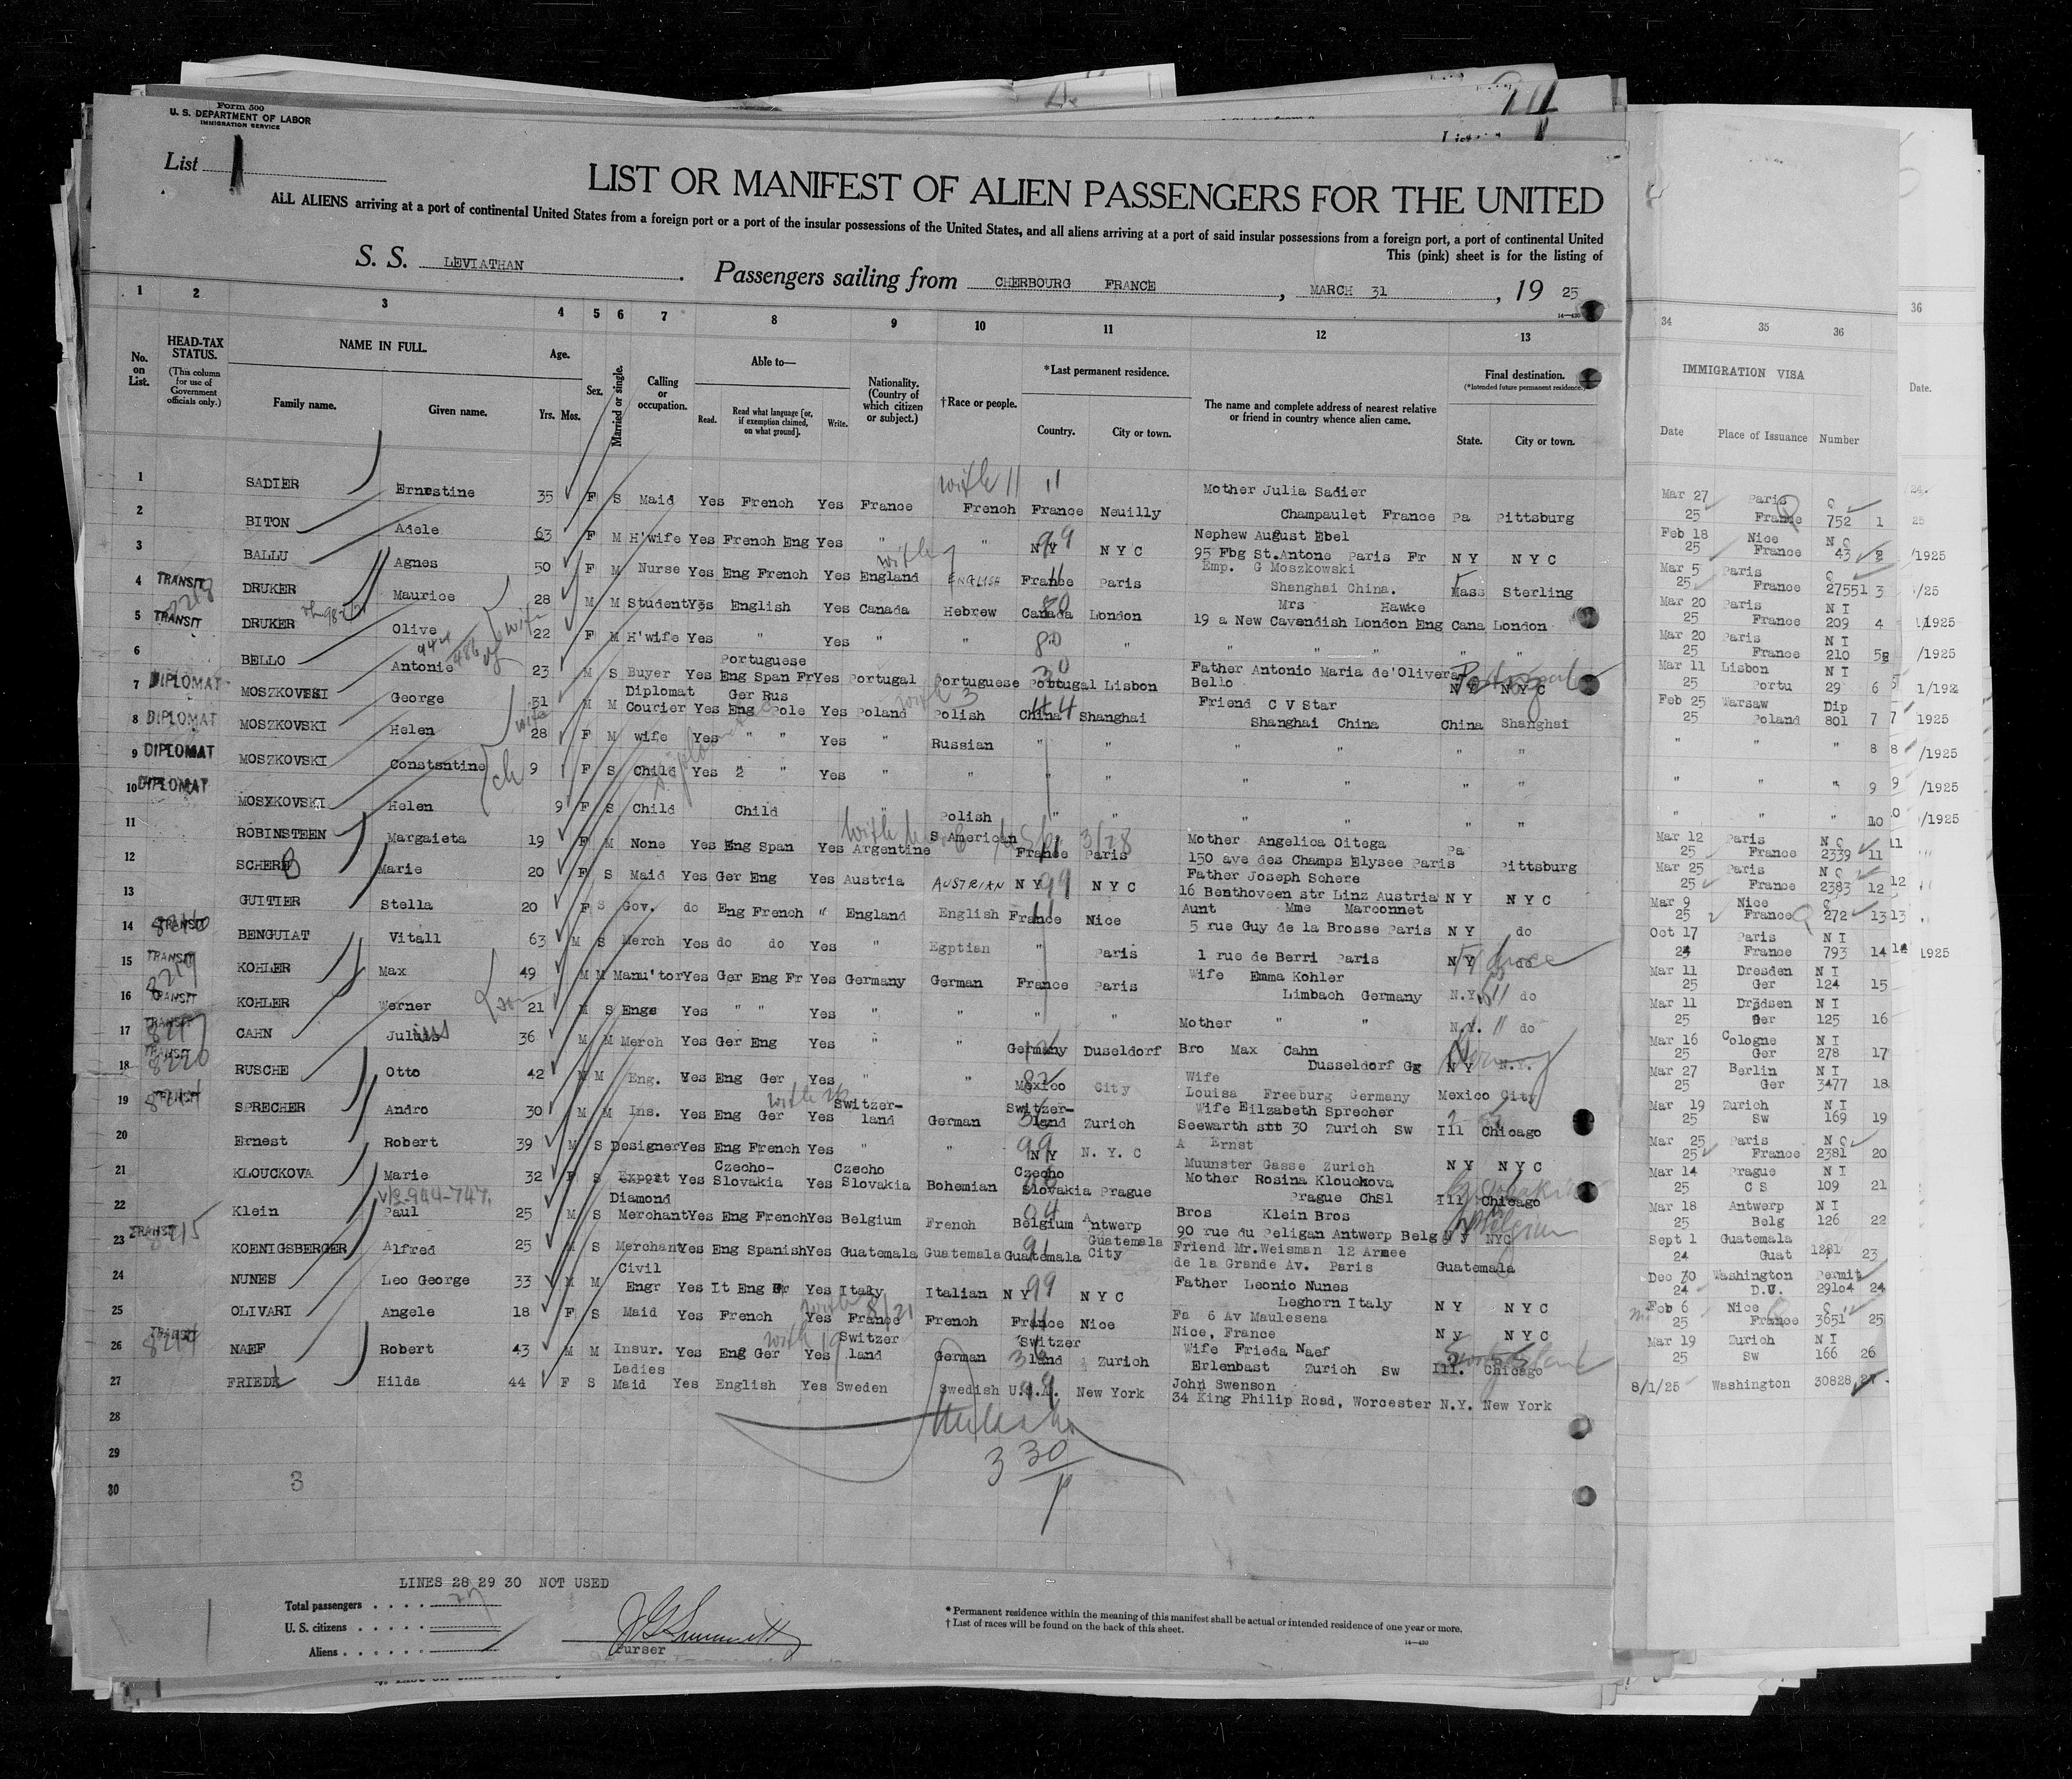 Form 500
U. S. DEPARTMENT OF LABOR
IMMIGRATION SERVICE
List 1
LIST OR MANIFEST OF ALIEN PASSENGERS FOR THE UNITED
ALL ALIENS arriving at a port of continental United States from a foreign port or a port of the insular possessions of the United States, and all aliens arriving at a port of said insular possessions from a foreign port, a port of continental United
This (pink) sheet is for the listing of
S. S. LEVIATHAN. Passengers sailing from CHERBOURG FRANCE, MARCH 31, 19 25
14—430
1 2 3 4 5 6 7 8 9 10 11 12 13 34 35 36 36
No. on List.
HEAD-TAX STATUS.
(This column for use of Government officials only.)
NAME IN FULL.
Family name. Given name.
Age.
Yrs. Mos.
Sex.
Married or single.
Calling or occupation.
Able to—
Read. Read what language [or, if exemption claimed, on what ground]. Write.
Nationality. (Country of which citizen or subject.)
†Race or people.
*Last permanent residence.
Country. City or town.
The name and complete address of nearest relative or friend in country whence alien came.
Final destination.
(*Intended future permanent residence.)
State. City or town.
IMMIGRATION VISA
Date Place of Issuance Number
Date.
1 SADIER Ernestine 35 F S Maid Yes French Yes France French France Neuilly Mother Julia Sadier Champaulet France Pa Pittsburg Mar 27 25 Paris France Q 752 1
with 11
2 BITON Adele 63 F M H'wife Yes French Eng Yes " N Y N Y C Nephew August Ebel 95 Fbg St.Antone Paris Fr N Y N Y C Feb 18 25 Nice France N Q 43 2
99
3 BALLU Agnes 50 F M Nurse Yes Eng French Yes England ENGLISH France Paris Emp. G Moszkowski Shanghai China. Mass Sterling Mar 5 25 Paris France Q 27551 3
with 7
4 TRANSIT DRUKER Maurice 28 M M Student Yes English Yes Canada Hebrew Canada London Mrs Hawke 19 a New Cavendish London Eng Cana London Mar 20 25 Paris France N I 209 4
5 TRANSIT DRUKER Olive 22 F M H'wife Yes " Yes " " " " " " " " Mar 20 25 Paris France N I 210 5
wife
80
6 BELLO Antonie 23 M S Buyer Yes Portuguese Eng Span Fr Yes Portugal Portuguese Portugal Lisbon Father Antonio Maria de'Olivera Bello N Y N Y C Mar 11 25 Lisbon Portu N I 29 6
Portugal
7 DIPLOMAT MOSZKOVSKI George 31 M M Diplomat Courier Yes Ger Rus Eng Pole Yes Poland Polish China Shanghai Friend C V Star Shanghai China China Shanghai Feb 25 25 Warsaw Poland Dip 801 7
with 3
44
8 DIPLOMAT MOSZKOVSKI Helen 28 F M wife Yes " " Yes " Russian " " " " " " " " " 8
wife
9 DIPLOMAT MOSZKOVSKI Constantine 9 F S Child Yes 2 " Yes " " " " " " " " " " " 9
ch
10 DIPLOMAT MOSZKOVSKI Helen 9 F S Child Child " Polish " " " " " " " " " 10
11 ROBINSTEEN Margaieta 19 F M None Yes Eng Span Yes Argentine S American France Paris Mother Angelica Oitega 150 ave des Champs Elysee Paris Pa Pittsburg Mar 12 25 Paris France N Q 2339 11
12 SCHERB Marie 20 F S Maid Yes Ger Eng Yes Austria AUSTRIAN N Y N Y C Father Joseph Schere 16 Benthoveen str Linz Austria N Y N Y C Mar 25 25 Paris France N Q 2383 12
99
13 GUITIER Stella 20 F S Gov. do Eng French " England English France Nice Aunt Mme Marconnet 5 rue Guy de la Brosse Paris N Y do Mar 9 25 Nice France Q 272 13
14 TRANSIT BENGUIAT Vitall 63 M S Merch Yes do do Yes " Egptian " Paris 1 rue de Berri Paris N Y do Oct 17 24 Paris France N I 793 14
15 TRANSIT 8219 KOHLER Max 49 M M Manu'tor Yes Ger Eng Fr Yes Germany German France Paris Wife Emma Kohler Limbach Germany N.Y. do Mar 11 25 Dresden Ger N I 124 15
16 TRANSIT KOHLER Werner 21 M S Engs Yes " " Yes " " " " Mother " " N.Y. do Mar 11 25 Drddsen Ger N I 125 16
son
17 TRANSIT 8217 CAHN Julius 36 M M Merch Yes Ger Eng Yes " Germany Duseldorf Bro Max Cahn Dusseldorf Gg N Y N.Y. Mar 16 25 Cologne Ger N I 278 17
18 TRANSIT 8220 RUSCHE Otto 42 M M Eng. Yes Eng Ger Yes " " Mexico City Wife Louisa Freeburg Germany Mexico City Mar 27 25 Berlin Ger N I 3477 18
19 TRANSIT 8214 SPRECHER Andro 30 M M Ins. Yes Eng Ger Yes Switzer-land German Switzer-land Zurich Wife Eilzabeth Sprecher Seewarth stt 30 Zurich Sw Ill Chicago Mar 19 25 Zurich Sw N I 169 19
20 Ernest Robert 39 M S Designer Yes Eng French Yes " " N Y N. Y. C A Ernst Muunster Gasse Zurich N Y N Y C Mar 25 25 Paris France N Q 2381 20
99
21 KLOUCKOVA Marie 32 F S Expost Yes Czecho-Slovakia Yes Czecho Slovakia Bohemian Czecho Slovakia Prague Mother Rosina Klouckova Prague ChSl Ill Chicago Mar 14 25 Prague C S N I 109 21
22 Klein Paul 25 M S Diamond Merchant Yes Eng French Yes Belgium French Belgium Antwerp Bros Klein Bros 90 rue du Peligan Antwerp Belg N Y NYC Mar 18 25 Antwerp Belg N I 126 22
Belgium
23 TRANSIT 8215 KOENIGSBERGER Alfred 25 M S Merchant Yes Eng Spanish Yes Guatemala Guatemala Guatemala Guatemala City Friend Mr.Weisman 12 Armee de la Grande Av. Paris Guatemala Sept 1 24 Guatemala Guat 1281 23
24 NUNES Leo George 33 M M Civil Engr Yes It Eng Yes Italy Italian N Y N Y C Father Leonio Nunes Leghorn Italy N Y N Y C Dec 24 Washington D.C. Permit 29104 24
99
25 OLIVARI Angele 18 F S Maid Yes French Yes France French France Nice Fa 6 Av Maulesena Nice, France N Y N Y C Feb 6 25 Nice France Q 3651 25
26 TRANSIT 8214 NAEF Robert 43 M M Insur. Yes Eng Ger Yes Switzer land German Switzer land Zurich Wife Frieda Naef Erlenbast Zurich Sw Ill. Chicago Mar 19 25 Zurich Sw N I 166 26
with 19
27 FRIEDE Hilda 44 F S Ladies Maid Yes English Yes Sweden Swedish U.S.A. New York John Swenson 34 King Philip Road, Worcester N.Y. New York 8/1/25 Washington 30828 27
28
29
30
3
3 30
LINES 28 29 30 NOT USED
Total passengers . . . . 27
U. S. citizens . . . . .
Aliens . . . . . .
Purser
* Permanent residence within the meaning of this manifest shall be actual or intended residence of one year or more.
† List of races will be found on the back of this sheet.
14—430